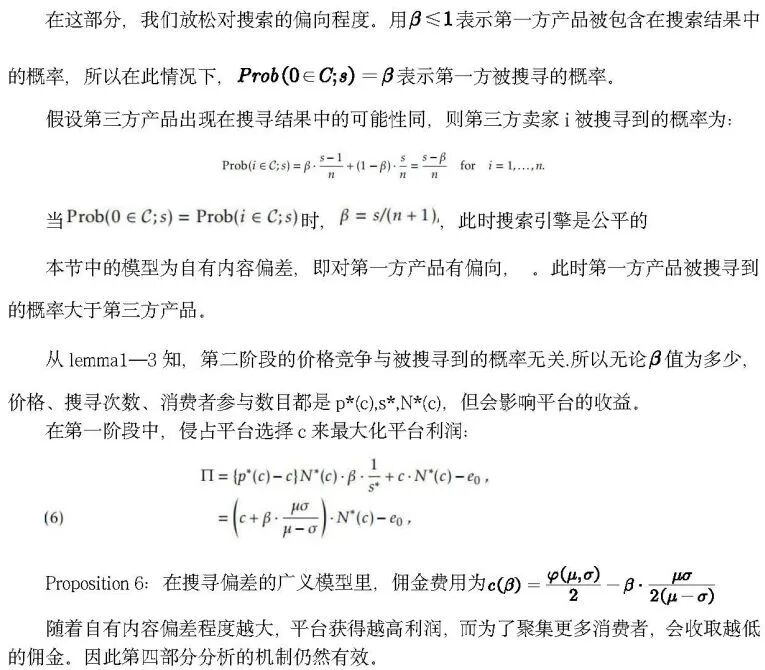 在这部分，我们放松对搜索的偏向程度。用β≤1表示第一方产品被包含在搜索结果中
的概率，所以在此情况下，Prob(0∈C;s)=β表示第一方被搜寻的概率。
假设第三方产品出现在搜寻结果中的可能性同，则第三方卖家 i 被搜寻到的概率为：
Prob(i ∈ C; s) = β · (s−1)/n + (1−β) · s/n = (s−β)/n for i = 1,...,n.
当 Prob(0 ∈ C; s) = Prob(i ∈ C; s) 时， β = s/(n + 1), ，此时搜索引擎是公平的
本节中的模型为自有内容偏差，即对第一方产品有偏向， 。此时第一方产品被搜寻到
的概率大于第三方产品。
从 lemma1—3 知，第二阶段的价格竞争与被搜寻到的概率无关.所以无论β值为多少，
价格、搜寻次数、消费者参与数目都是 p*(c),s*,N*(c)，但会影响平台的收益。
在第一阶段中，侵占平台选择 c 来最大化平台利润：
Π = {p*(c) − c}N*(c) · β · 1/s* + c · N*(c) − e₀ ,
(6) = (c + β · μσ/(μ − σ)) · N*(c) − e₀ ,
Proposition 6：在搜寻偏差的广义模型里，佣金费用为c(β) = φ(μ,σ)/2 − β · μσ/2(μ − σ)
随着自有内容偏差程度越大，平台获得越高利润，而为了聚集更多消费者，会收取越低
的佣金。因此第四部分分析的机制仍然有效。